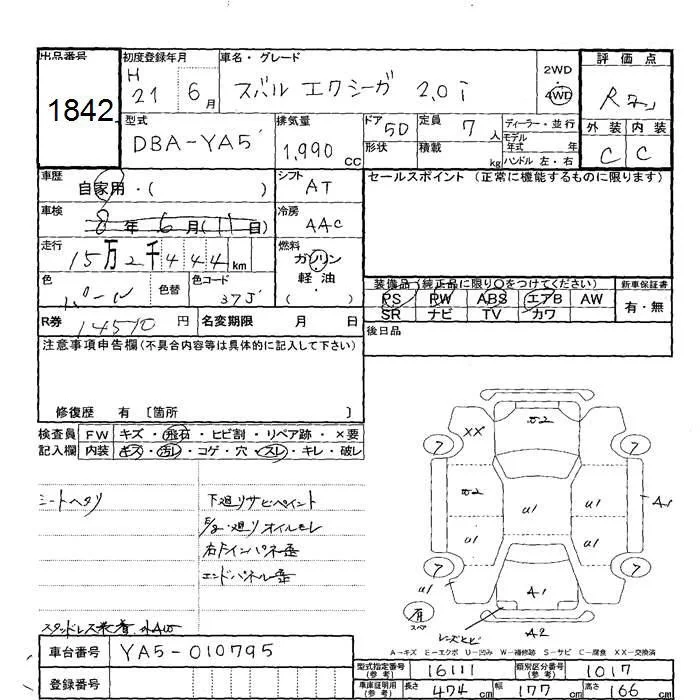 出品番号
1842
初度登録年月
H
21 6月
車名・グレード
スバル エクシーガ 2.0i
2WD
・
4WD
評価点
R
外装 内装
C C
型式
DBA-YA5
排気量
1,990 cc
ドア 5D
形状
定員 7 人
積載 kg
ディーラー・並行
モデル
年式 年
ハンドル 左・右
車歴
自家用・( )
シフト
AT
セールスポイント (正常に機能するものに限ります)
車検
8年6月(11日)
冷房
AAC
走行
15万2千444km
燃料
ガソリン
軽油・
( )
色
パール
色替
色コード
37J
装備品 (純正品に限り○をつけてください)
PS PW ABS エアB AW
SR ナビ TV カワ
新車保証書
有・無
R券 14510円
名変期限 月 日
後日品
注意事項申告欄(不具合内容等は具体的に記入して下さい)
修復歴 有 〔箇所 〕
検査員
記入欄
FW キズ・飛石・ヒビ割・リペア跡・×要
内装 キズ・汚レ・コゲ・穴・スレ・キレ・破レ
シートヘタリ
下廻りサビペイント
廻りオイルモレ
右インパネ歪
エンドパネル歪
スタッドレス
車台番号 YA5-010795
登録番号
XX
7
7
7
7
U1
U1
U1
U1
U1
A1
A1
A2
有
スペ
A-キズ E-エクボ U-凹み W-補修跡 S-サビ C-腐食 XX-交換済
型式指定番号
(参考)
16111
類別区分番号
(参考)
1017
車庫証明用
(参考)
長さ 474 cm 幅 177 cm 高さ 166 cm